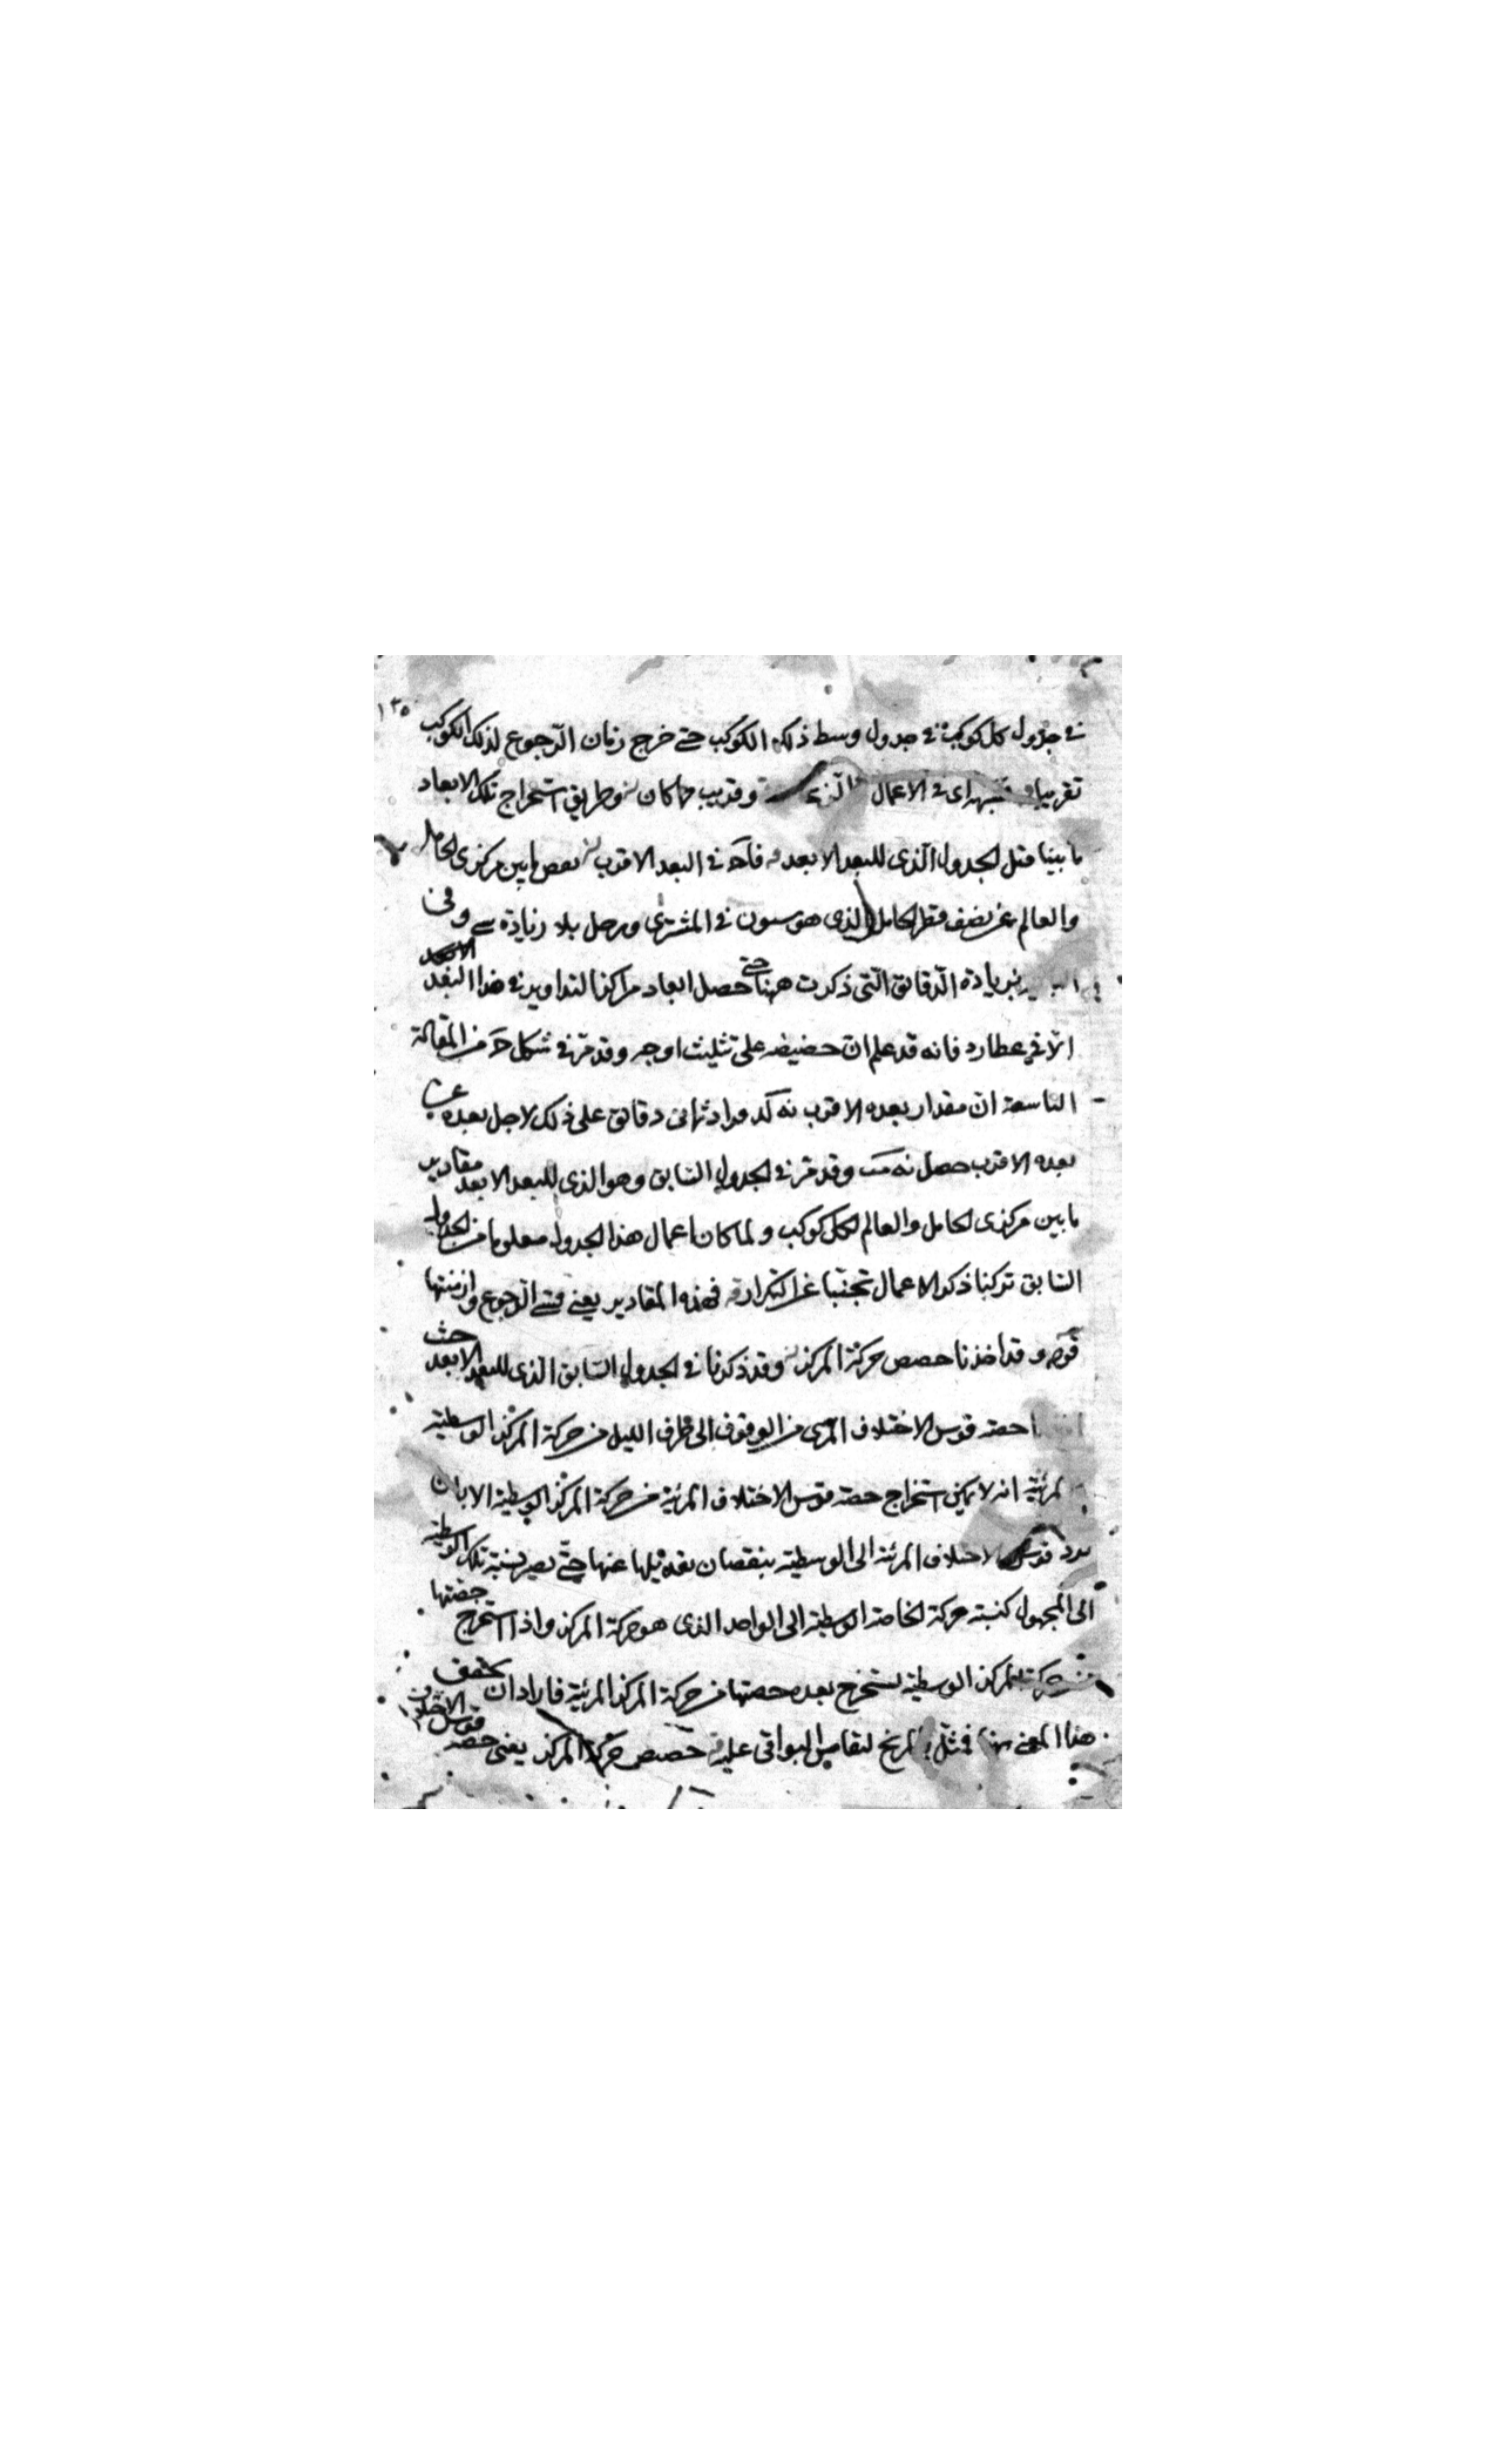 ١٣٥
في جدول كل كوكب في جدول وسط ذلك الكوكب حتى خرج زمان الرجوع لذلك الكوكب
تقريبا في الاعمال وقريب مما كان وطريق استخراج تلك الابعاد
ما بينا مثل الجدول الذى للبعد الابعد في البعد الاقرب نقص ما بين مركزى الحامل
والعالم عن نصف قطر الحامل الذى هو ستون فى المشترى وزحل بلا زيادة وفى
بزيادة الدقائق التى ذكرت ههنا حتى حصل ابعاد مراكز التداوير فى هذا البعد
الا في عطارد فانه قد علم ان حضيضه على تثليث اوجه وقد مر فى شكل من المقالة
التاسعة ان مقدار بعده الاقرب نه لد وزاد ثمانى دقائق على ذلك لاجل بعده عن
بعده الاقرب حصل نه مب وقد مر فى الجدول السابق وهو الذى للبعد الابعد مقادير
ما بين مركزى الحامل والعالم لكل كوكب ولما كان اعمال هذا الجدول معلوما من الجدول
السابق تركنا ذكر الاعمال تجنبا عن التكرار فهذه المقادير يعنى قسى الرجوع وازمنتها
قوله وقد اخذنا حصص حركة المركز وقد ذكرنا فى الجدول السابق الذى للبعد الابعد حيث
حصة قوس الاختلاف المرئى من الوقوف الى طرف الليل من حركة المركز الوسطية
المرئية انه لا يمكن استخراج حصة قوس الاختلاف المرئية من حركة المركز الوسطية الا بان
يرد قوس الاختلاف المرئية الى الوسطية بنقصان تعديلها عنها حتى يصير نسبة تلك الوسطية
الى المجهول كنسبة حركة الخاصة الوسطية الى الواحد الذى هو حركة المركز واذا استخرج حصتها
من حركة المركز الوسطية يستخرج بعده حصتها من حركة المركز المرئية فاراد ان يكشف
هذا المعنى ههنا فى مثل المريخ ليقاس البواقى عليه حصص حركة المركز يعنى حصة قوس الاختلاف